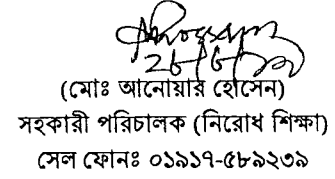 ২৮/৮/১৯
(মোঃ আনোয়ার হোসেন)
সহকারী পরিচালক (নিরোধ শিক্ষা)
সেল ফোনঃ ০১৯১৭-৫৮৯২৩৯